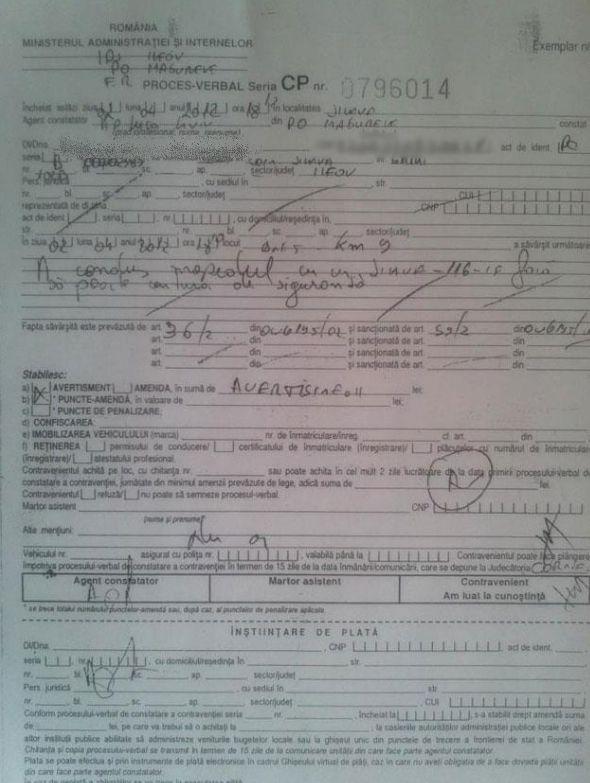 ROMÂNIA
MINISTERUL ADMINISTRAŢIEI ŞI INTERNELOR
Exemplar nr
IPJ ILFOV
PO MAGURELE
PROCES-VERBAL Seria CP nr. 0796014
Încheiat astăzi ziua luna 04 anul 2012 ora în localitatea JILAVA
Agent constatator din PO MAGURELE constat
(grad profesional, nume, prenume)
DVDna act de ident.
seria JILAVA
nr. bl. sc. ap. sector/judeţ ILFOV
Pers. juridică , cu sediul în str.
nr. bl. sc. ap. sector/judeţ CUI
reprezentată de dl/dna CNP
act de ident. seria nr. , cu domiciliul/reşedinţa în,
str. nr. bl. sc. ap. sector/judeţ
În ziua 02 luna 04 anul 2012 ora locul km 9 a săvârşit următoare
A condus JILAVA-116 fără
să poarte centura de siguranţă
Fapta săvârşită este prevăzută de art. 36/2 din OUG 195/02 şi sancţionată de art. din OUG 195/
art. din şi sancţionată de art. din
art. din şi sancţionată de art. din
art. din şi sancţionată de art. din
Stabilesc:
a) AVERTISMENT AMENDA, în sumă de AVERTISMENT lei;
b) * PUNCTE-AMENDĂ, în valoare de lei;
c) * PUNCTE DE PENALIZARE;
d) CONFISCAREA:
e) IMOBILIZAREA VEHICULULUI (marca) nr. de înmatriculare/înreg. cf. art. din
f) REŢINEREA permisului de conducere/ certificatului de înmatriculare (înregistrare)/ plăcuţelor cu numărul de înmatriculare
(înregistrare)/ atestatului profesional.
Contravenientul achită pe loc, cu chitanţa nr. sau poate achita în cel mult 2 zile lucrătoare de la data primirii procesului-verbal de
constatare a contravenţiei, jumătate din minimul amenzii prevăzute de lege, adică suma de lei.
Contravenientul refuză/ nu poate să semneze procesul-verbal.
Martor asistent CNP
(nume şi prenume)
Alte menţiuni:
Vehiculul nr. asigurat cu poliţa nr. , valabilă până la Contravenientul poate face plângere
împotriva procesului-verbal de constatare a contravenţiei în termen de 15 zile de la data înmânării/comunicării, care se depune la Judecătoria
Agent constatator Martor asistent Contravenient
Am luat la cunoştinţă
* se trece totalul numărului punctelor-amendă sau, după caz, al punctelor de penalizare aplicate.
ÎNŞTIINŢARE DE PLATĂ
DVDna , CNP act de ident.
seria nr. , cu domiciliul/reşedinţa în str.
nr. bl. sc. ap. sector/judeţ
Pers. juridică , cu sediul în str
nr. bl. sc. ap. sector/judeţ , CUI
Conform procesului-verbal de constatare a contravenţiei seria nr. , încheiat la , s-a stabilit drept amendă suma
de lei, pe care va trebui să o achitaţi la , la casieriile autorităţilor administraţiei publice locale ori ale
altor instituţii publice abilitate să administreze veniturile bugetelor locale sau la ghişeul unic din punctele de trecere a frontierei de stat a României.
Chitanţa şi copia procesului-verbal se transmit în termen de 15 zile de la comunicare unităţii din care face parte agentul constatator.
Plata se poate efectua şi prin instrumente de plată electronice în cadrul Ghişeului virtual de plăţi, caz în care nu aveţi obligaţia de a face dovada plăţii unităţii
din care face parte agentul constatator.